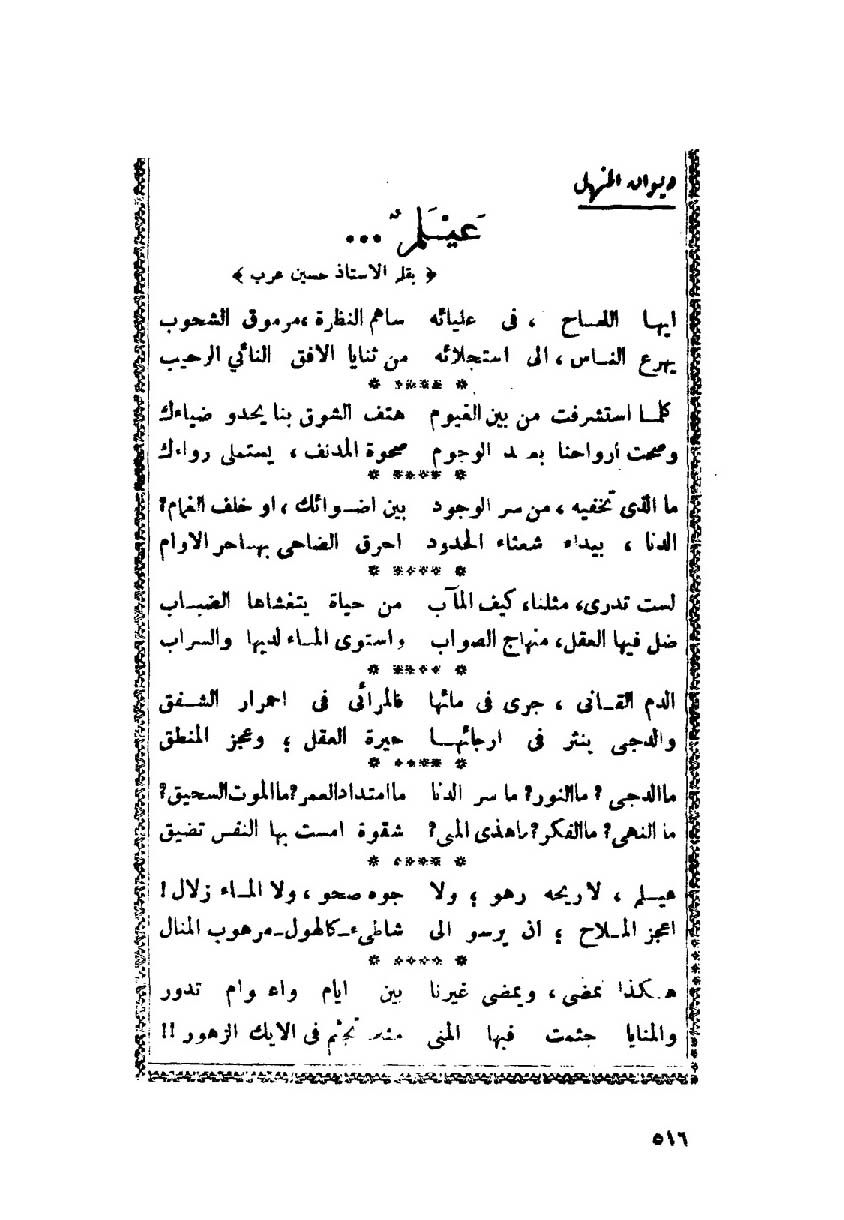 ديوان المنهل
عَيْلَمٌ ...
﴿ بقلم الاستاذ حسين عرب ﴾
ايها اللماح ، فى عليائه ساهم النظرة ، مرموق الشحوب
يهرع النـاس ، الى استجلائه من ثنايا الافق النائي الرحيب
* **** *
كلمـا استشرفت من بين الغيوم هتف الشوق بنا يحدو ضياءك
وصحت أرواحنا بعـد الوجوم صحوة المدنف ، يستملى رواءك
* **** *
ما الذى تخفيه ، من سر الوجود بين اضـوائك ، او خلف الغمام؟
الدنا ، بيداء شعثاء الحدود احرق الضاحى بهـا حر الاوام
* **** *
لست تدرى، مثلنا، كيف المآب من حياة يتغشاها الضبـاب
ضل فيها العقل، منهاج الصواب واستوى المـاء لديها والسراب
* **** *
الدم القـانى ، جرى فى مائها فالمرائى فى احمرار الشـفق
والدجى ينثر فى ارجائهـا حيرة العقل ؛ وعجز المنطق
* **** *
ماالدجى ؟ ماالنور؟ ما سر الدنا ماامتدادالعمر؟ماالموت السحيق؟
ما النهى؟ ماالفكر؟ماهذى المنى؟ شقوة امست بها النفس تضيق
* **** *
عيـلم ، لاريحه رهو ؛ ولا جوه صحو ، ولا المـاء زلال !
اعجز المـلاح ؛ ان يرسو الى شاطىء ـ كالهول ـ مرهوب المنال
* **** *
هـكذا نمضى ، ويمضى غيرنا بين ايام واعـوام تدور
والمنايا جثمت فيها المنى مثلمـا تجثم فى الايك الزهور !!
٥١٦